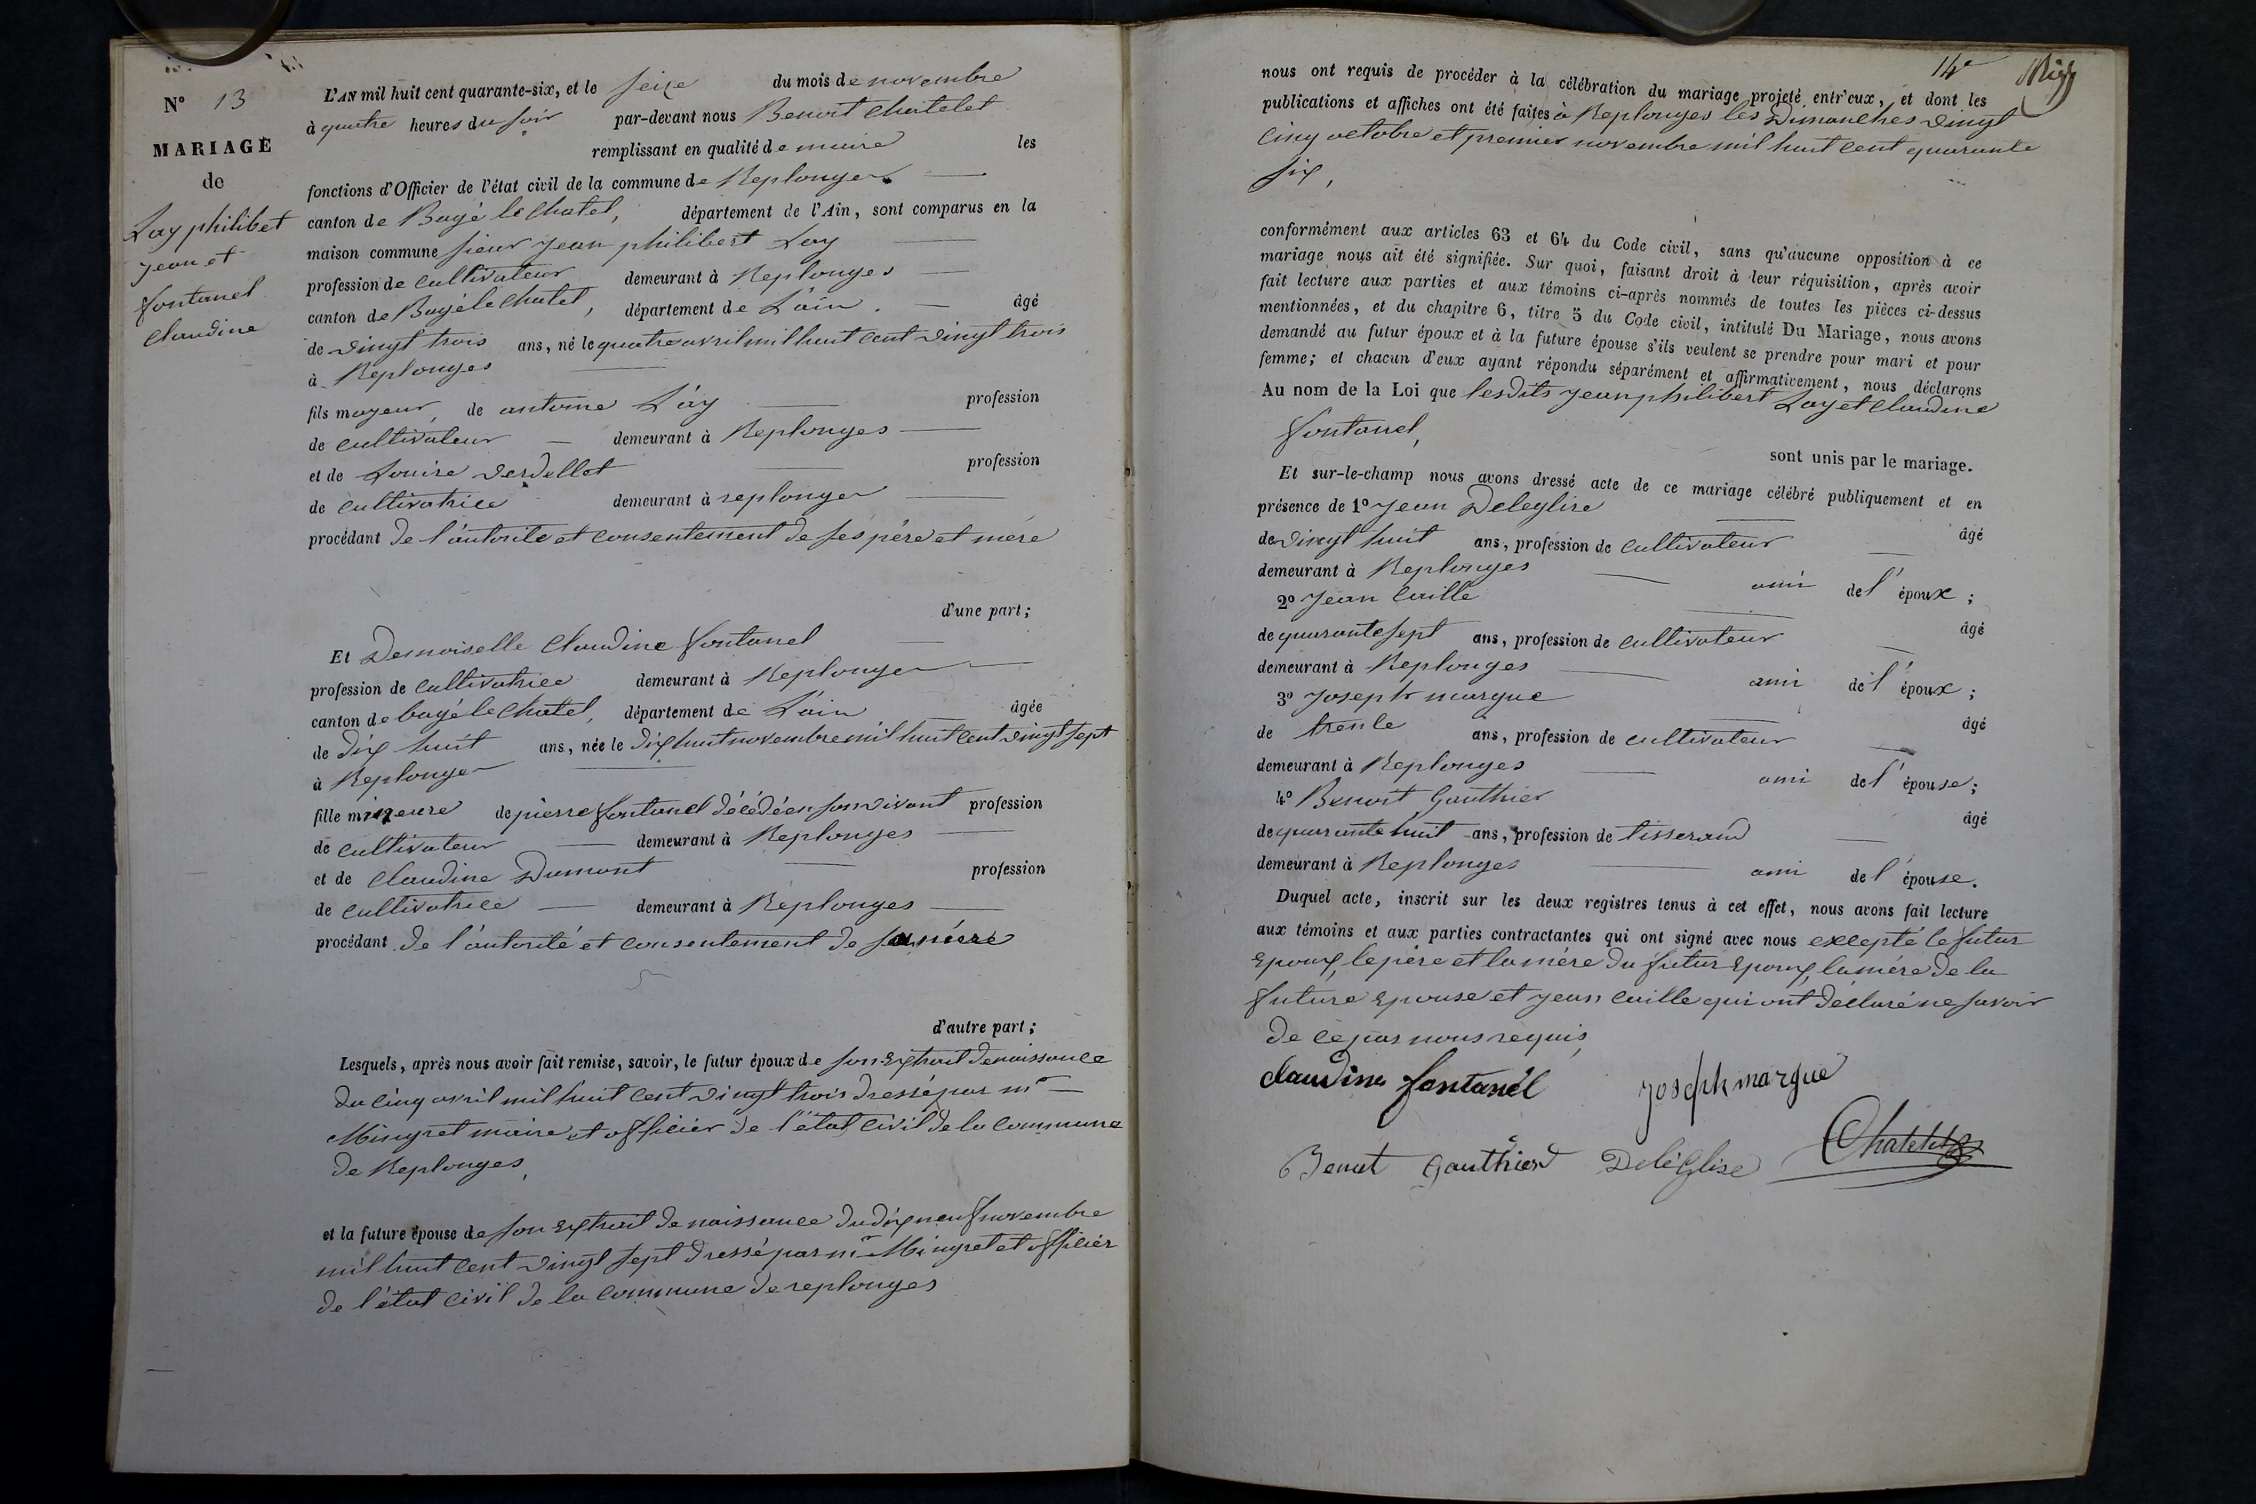 N° 13
MARIAGE
de
Lay philibet
jean et
fontanel
Claudine
L'AN mil huit cent quarante-six, et le seize du mois de novembre
à quatre heures du soir par-devant nous Benoit Chatelet
remplissant en qualité de maire les
fonctions d'Officier de l'état civil de la commune de Replonges
canton de Bagé le Chatel, département de l'Ain, sont comparus en la
maison commune sieur jean philibert Lay
profession de cultivateur demeurant à Replonges
canton de Bagé le Chatel, département de L'ain, âgé
de vingt trois ans, né le quatre avril mil huit cent vingt trois
à Replonges
fils mayeur, de antoine Lay profession
de cultivateur demeurant à Replonges
et de Louise Verdellet profession
de cultivatrice demeurant à replonges
procédant de l'autorité et consentement de ses père et mère
d'une part;
Et Demoiselle Claudine fontanel
profession de cultivatrice demeurant à Replonges
canton de bagé le Chatel, département de L'ain âgée
de dix huit ans, née le dix huit novembre mil huit cent vingt sept
à Replonges
fille mineure de pierre fontanel décédé en son vivant profession
de cultivateur demeurant à Replonges
et de Claudine Dumont profession
de cultivatrice demeurant à Replonges
procédant de l'autorité et consentement de sa mère
d'autre part;
Lesquels, après nous avoir fait remise, savoir, le futur époux de son Extrait de naissance
du cinq avril mil huit cent vingt trois dressé par mr
Mingret maire et officier de l'état civil de la commune
de Replonges,
et la future épouse de son Extrait de naissance du dix neuf novembre
mil huit cent vingt sept dressé par mr Mingret et officier
de l'état civil de la commune de replonges
14e
nous ont requis de procéder à la célébration du mariage projeté entr'eux, et dont les
publications et affiches ont été faites à Replonges les Dimanches vingt
cinq octobre et premier novembre mil huit cent quarante
six,
conformément aux articles 63 et 64 du Code civil, sans qu'aucune opposition à ce
mariage nous ait été signifiée. Sur quoi, faisant droit à leur réquisition, après avoir
fait lecture aux parties et aux témoins ci-après nommés de toutes les pièces ci-dessus
mentionnées, et du chapitre 6, titre 5 du Code civil, intitulé Du Mariage, nous avons
demandé au futur époux et à la future épouse s'ils veulent se prendre pour mari et pour
femme; et chacun d'eux ayant répondu séparément et affirmativement, nous déclarons
Au nom de la Loi que lesdits jean philibert Lay et Claudine
fontanel,
sont unis par le mariage.
Et sur-le-champ nous avons dressé acte de ce mariage célébré publiquement et en
présence de 1° Jean Deleglise
âgé
de vingt huit ans, profession de cultivateur
demeurant à Replonges ami de l'époux;
2° Jean Caille
âgé
de quarante sept ans, profession de cultivateur
demeurant à Replonges ami de l'époux;
3° Joseph margue
âgé
de trente ans, profession de cultivateur
demeurant à Replonges ami de l'épouse;
4° Benoit Gauthier
âgé
de quarante huit ans, profession de tisserand
demeurant à Replonges ami de l'épouse.
Duquel acte, inscrit sur les deux registres tenus à cet effet, nous avons fait lecture
aux témoins et aux parties contractantes qui ont signé avec nous excepté le futur
Epoux, le père et la mère du futur Epoux, la mère de la
future Epouse et jean Caille qui ont déclaré ne savoir
de ce par nous requis,
Claudine fontanel joseph margue
Benoit Gauthier Deléglise Chatelet